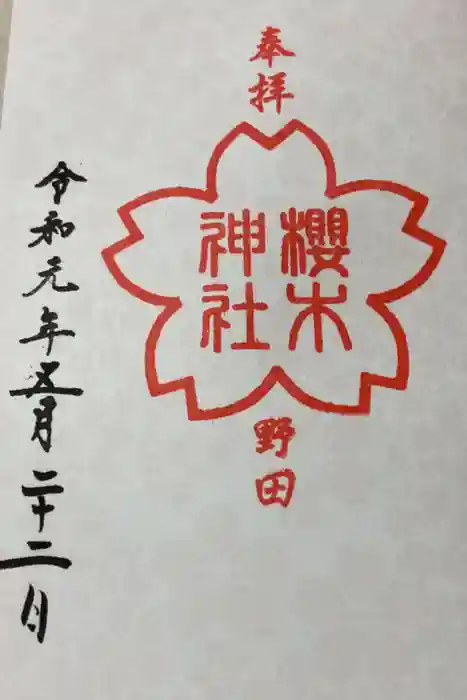 奉拝
櫻木
神社
野田
令和元年五月二十二日